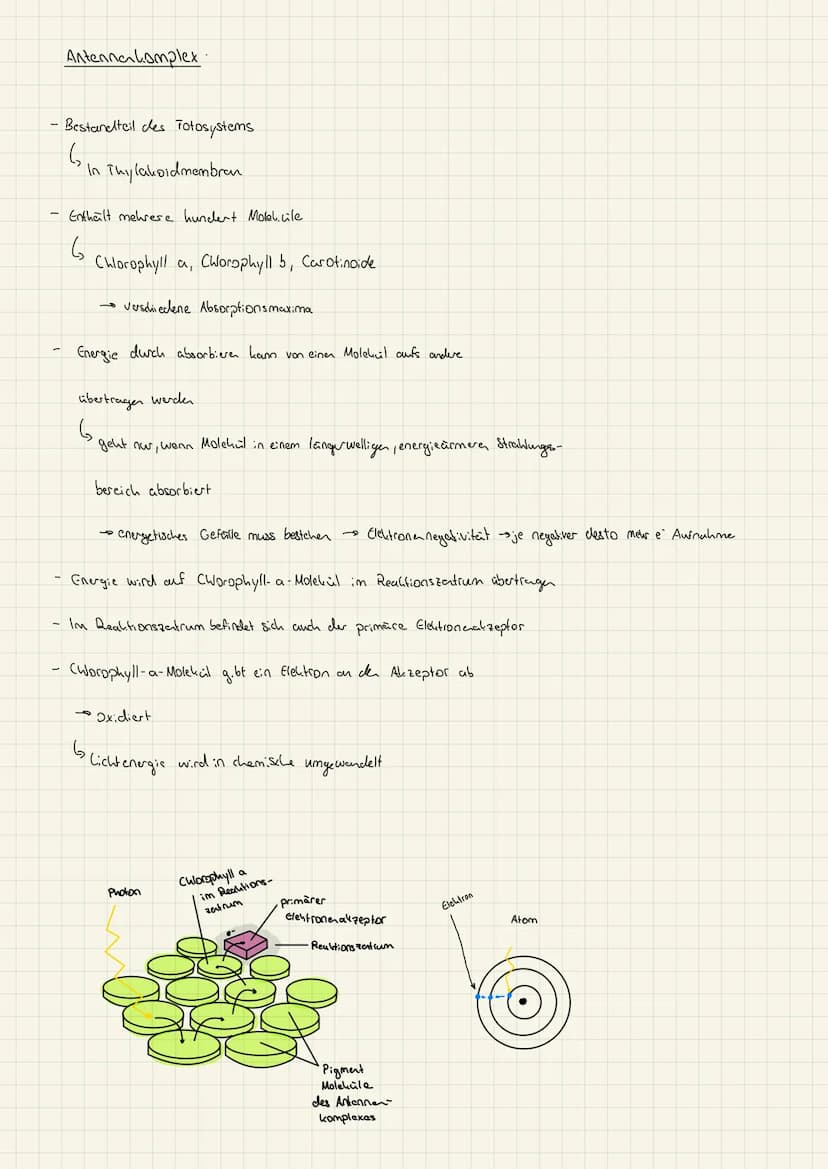 Antennenkomplex
- Bestandteil des Fotosystems
↳ In Thylakoidmembran
- Enthält mehrere hundert Moleküle
↳ Chlorophyll a, Chlorophyll b, Carotinoide
→ verschiedene Absorptionsmaxima
- Energie durch absorbieren kann von einen Molekül aufs andere
übertragen werden
↳ geht nur, wenn Molekül in einem längerwelligen, energieärmeren Strahlungs-
bereich absorbiert
→ energetisches Gefälle muss bestehen → Elektronennegativität → je negativer desto mehr e⁻ Aufnahme
- Energie wird auf Chlorophyll-a-Molekül im Reaktionszentrum übertragen
- Im Reaktionszentrum befindet sich auch der primäre Elektronenakzeptor
- Chlorophyll-a-Molekül gibt ein Elektron an den Akzeptor ab
→ Oxidiert
↳ Lichtenergie wird in chemische umgewandelt
Photon
Chlorophyll a
im Reaktions-
zentrum
primärer
Elektronenakzeptor
Reaktionszentrum
e⁻
Pigment
Moleküle
des Antennen-
komplexes
Elektron
Atom